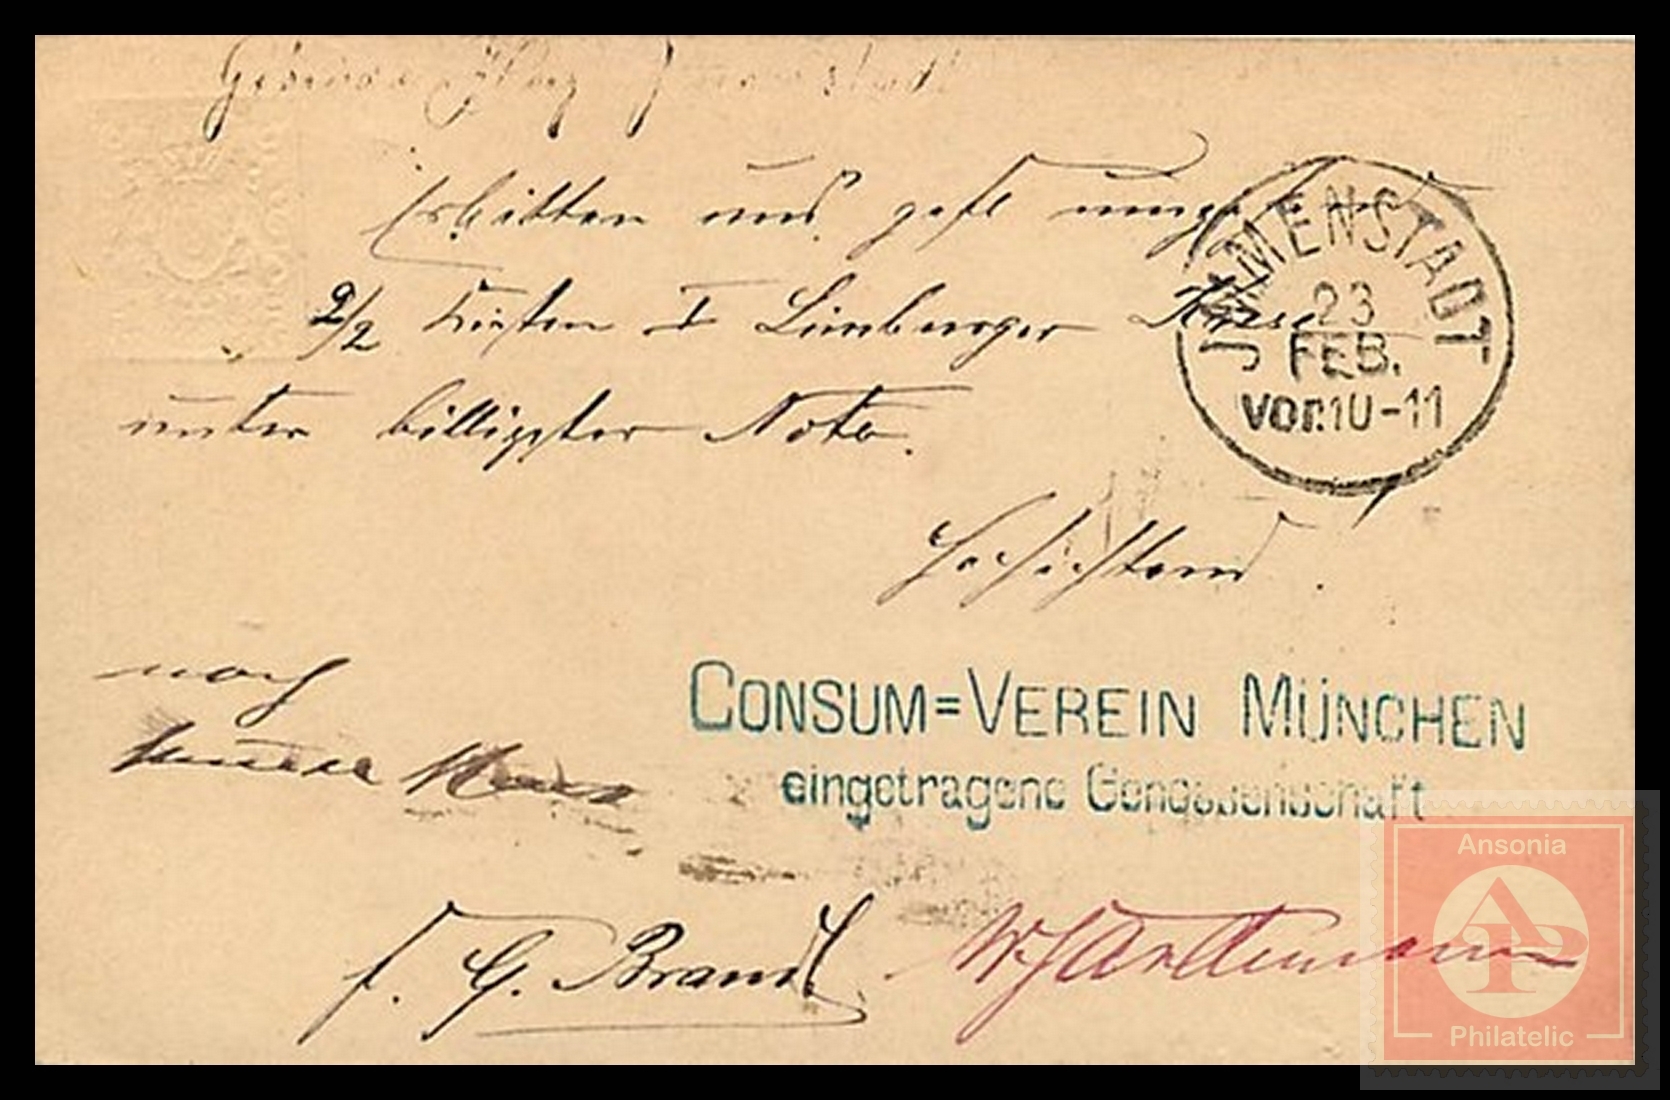 Gebrüder Herz Immenstadt
Erbitten uns gefl umgehend
2/2 Kisten I Limburger Käse
unter billigster Nota.
Hochachtend
IMMENSTADT
23
FEB.
vor.10-11
noch
CONSUM=VEREIN MÜNCHEN
eingetragene Genossenschaft
F. G. Brand
W Hartmann
Ansonia
AP
Philatelic